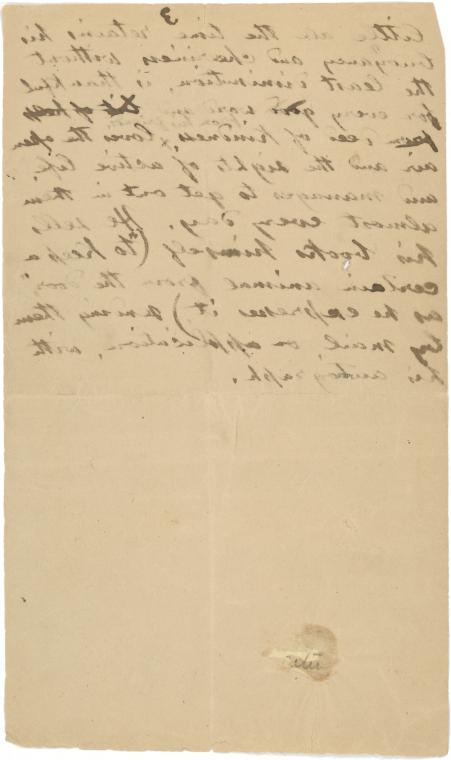 3
little all the time retains his
buoyancy and cheeriness without
the least diminution, is thankful
for every good word and
deed of kindness, loves the open
air and the sights of active life,
and manages to get out in them
almost every day. He sells
his books himself (to keep a
certain animal from the door
as he expresses it) sending them
by mail on application, with
his autograph.